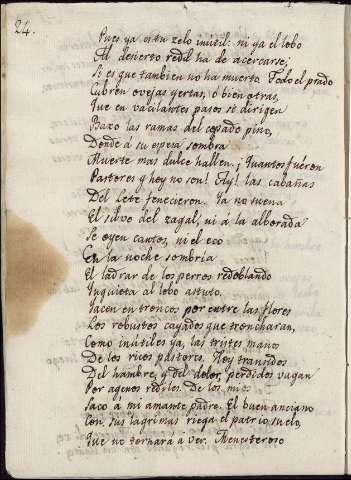 24.
Pues ya es tu zelo inutil: ni ya el lobo
Al desierto redil ha de acercarse;
Si es que tambien no ha muerto. Todo el prado
Cubren ovejas yertas, ó bien otras,
Que en vacilantes pasos se dirigen
Baxo las ramas del copado pino,
Donde á su espesa sombra
Muerte mas dulce hallen. ¡Quantos fuéron
Pastores y hoy no son! Ay! las cabañas
Del Lete fenecieron. Ya no suena
El silvo del zagal, ni á la alborada
Se oyen cantos, ni el eco
En la noche sombria
El ladrar de los perros redoblando
Inquieta al lobo astuto.
Yacen en troncos por entre las flores
Los robustos cayados que troncharan,
Como inútiles ya, las tristes manos
De los ricos pastores. Hoy transidos
Del hambre, y del dolor, perdidos vagan
Por agenos rediles. De los mios
Saco á mi amante padre. El buen anciano
Con sus lagrimas riega el patrio suelo,
Que no tornará a ver. Menesteroso